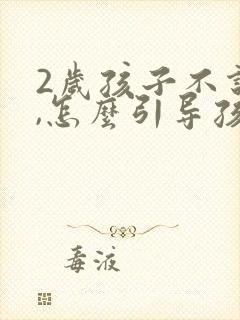 2歲孩子不
,怎麼引导孩
毒液